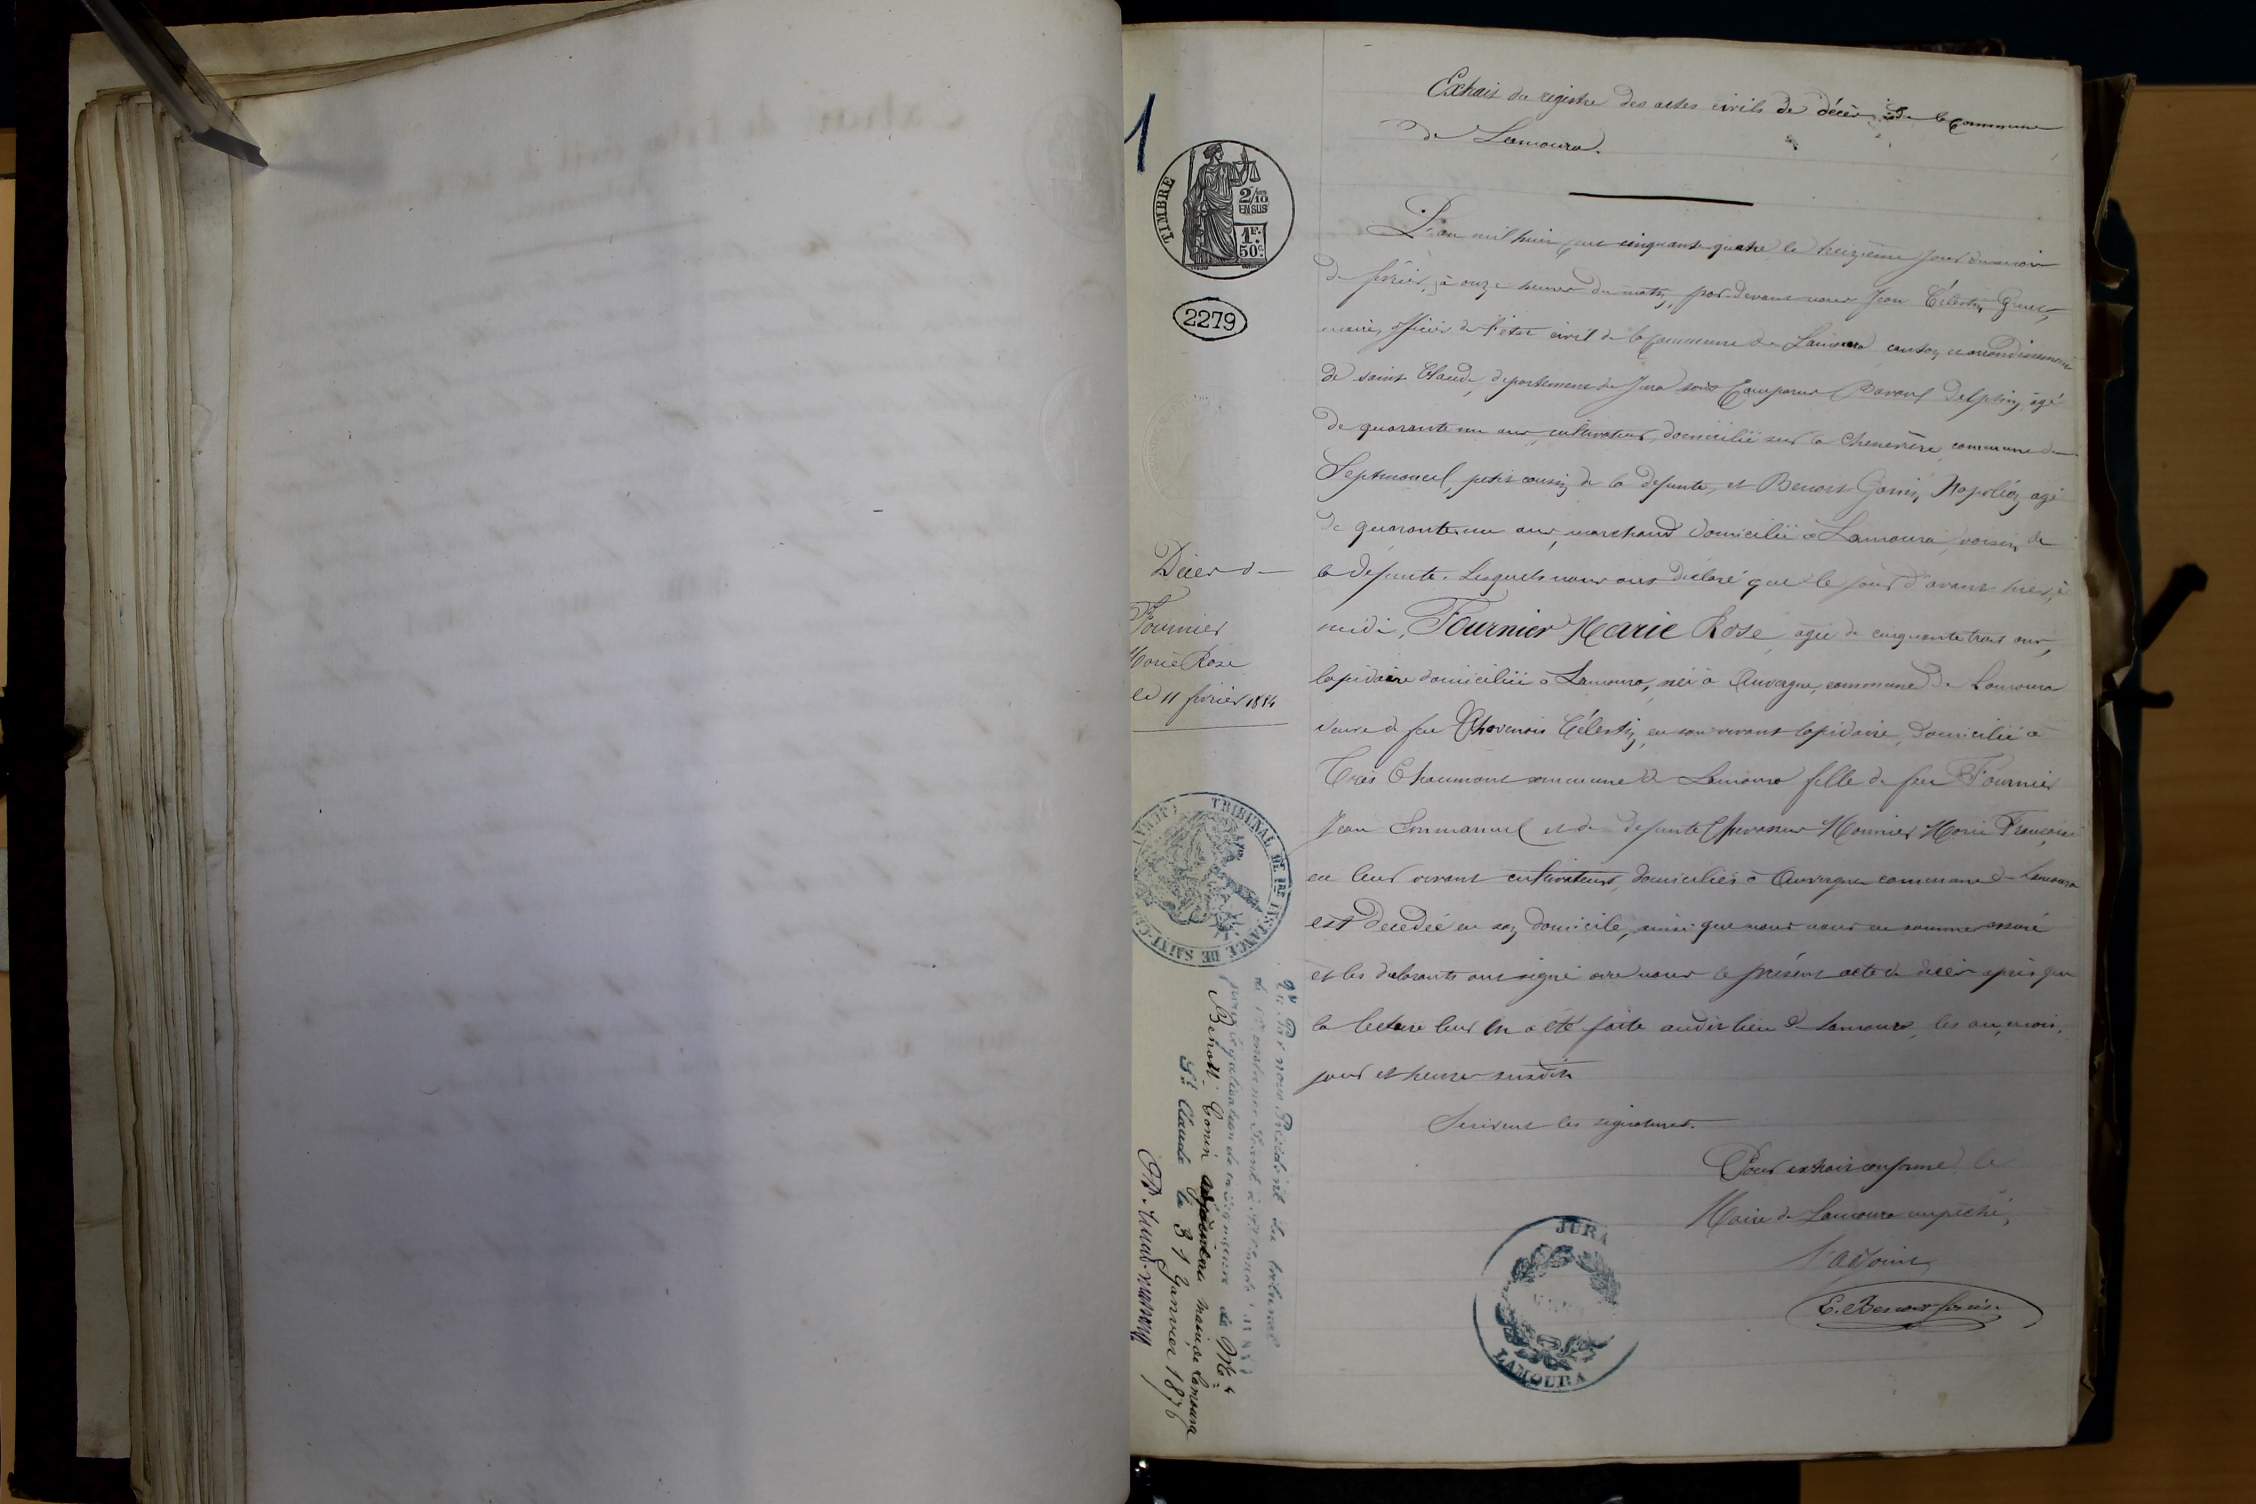 Extrait du registre des actes civils de décès de la Commune
de Lamoura.
L'an mil huit cent cinquante quatre le treizième jour du mois
de février, à onze heures du matin, par devant nous Jean Célestin
maire, officier de l'état civil de la commune de Lamoura canton et arrondissement
de saint Claude, département du Jura sont Comparus Bavoux Delphin, âgé
de quarante un ans, cultivateur, domicilié sur la Chenevière, commune de
Septmoncel, petit cousin de la défunte, et Benoit Gonin, Napoléon, agé
de quarante un ans, marchand domicilié à Lamoura, voisin de
la défunte. Lesquels nous ont déclaré que le jour d'avant hier, à
midi, Fournier Marie Rose, agée de cinquante trois ans,
lapidaire domiciliée à Lamoura, née à Auvergne, commune de Lamoura
veuve de feu Célestin, en son vivant lapidaire, domicilié à
Très Chaumont commune de Lamoura fille de feu Fournier
Jean Emmanuel et de défunte Monnier Marie Françoise
en leur vivant cultivateurs, domiciliés à Auvergne commune de Lamoura
est décédée en son domicile, ainsi que nous nous en sommes assuré
et les déclarants ont signé avec nous le présent acte de décès après que
la lecture leur en a été faite audit lieu de Lamoura, les an, mois,
jour et heure susdits
Suivent les signatures.
Pour extrait conforme, le
Maire de Lamoura empêché,
l'adjoint
E. Benoit Gonin
TIMBRE
2/10
EN SUS
1F.
50c.
2279
Décès de
Fournier
Marie Rose
le 11 février 1854
TRIBUNAL DE 1RE INSTANCE DE SAINT-CLAUDE (JURA)
Vu Par nous Président du tribunal
de 1re instance séant à St Claude
pour légalisation de la signature de Mr
Benoit Gonin adjoint au maire de Lamoura
St Claude le 31 Janvier 1876
JURA
LAMOURA